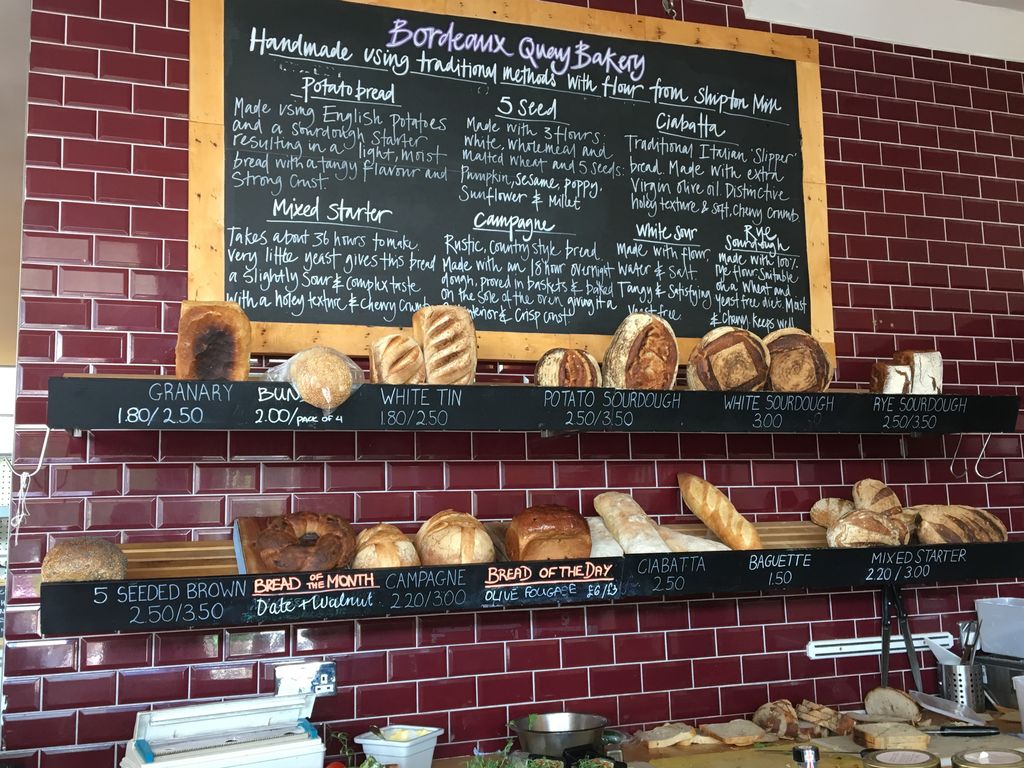 Bordeaux Quay Bakery
Handmade using traditional methods with flour from Shipton Mill
Potato bread
Made using English Potatoes
and a sourdough starter
resulting in a light, moist
bread with a tangy flavour and
Strong Crust.
5 Seed
Made with 3 flours:
white, wholemeal and
malted wheat and 5 seeds:
Pumpkin, sesame, poppy,
Sunflower & Millet
Ciabatta
Traditional Italian 'Slipper'
bread. Made with extra
Virgin olive oil. Distinctive
holey texture & soft, chewy crumb
Mixed Starter
Takes about 36 hours to make
very little yeast gives this bread
a slightly sour & complex taste
with a holey texture & chewy
Campagne
Rustic, country style bread
Made with an 18 hour overnight
dough, proved in baskets & baked
on the sole of the oven giving it a
& Crisp
White sour
made with flour
water & salt
Tangy & Satisfying
Yeast free
Rye
Sourdough
made with 100%
rye flour. Suitable
on a wheat and
yeast free diet. Moist
& chewy. Keeps well
GRANARY
1.80/2.50
BUN
2.00/PACK OF 4
WHITE TIN
1.80/2.50
POTATO SOURDOUGH
2.50/3.50
WHITE SOURDOUGH
3.00
RYE SOURDOUGH
2.50/3.50
5 SEEDED BROWN
2.50/3.50
BREAD OF THE MONTH
Date + Walnut
CAMPAGNE
2.20/3.00
BREAD OF THE DAY
OLIVE FOUGASSE £6/£3
CIABATTA
2.50
BAGUETTE
1.50
MIXED STARTER
2.20/3.00